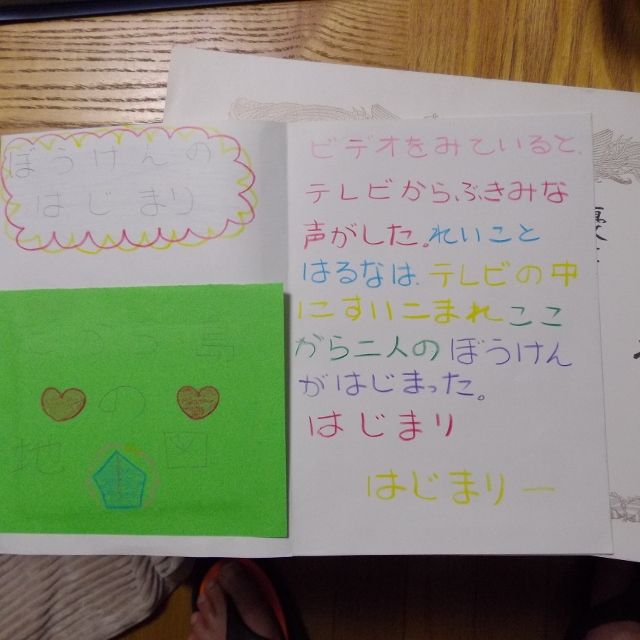 ぼうけんの
はじまり
島
の
地図
ビデオをみていると、
テレビから、ぶきみな
声がした。れいこと
はるなは、テレビの中
にすいこまれ ここ
から二人のぼうけん
がはじまった。
はじまり
はじまりー